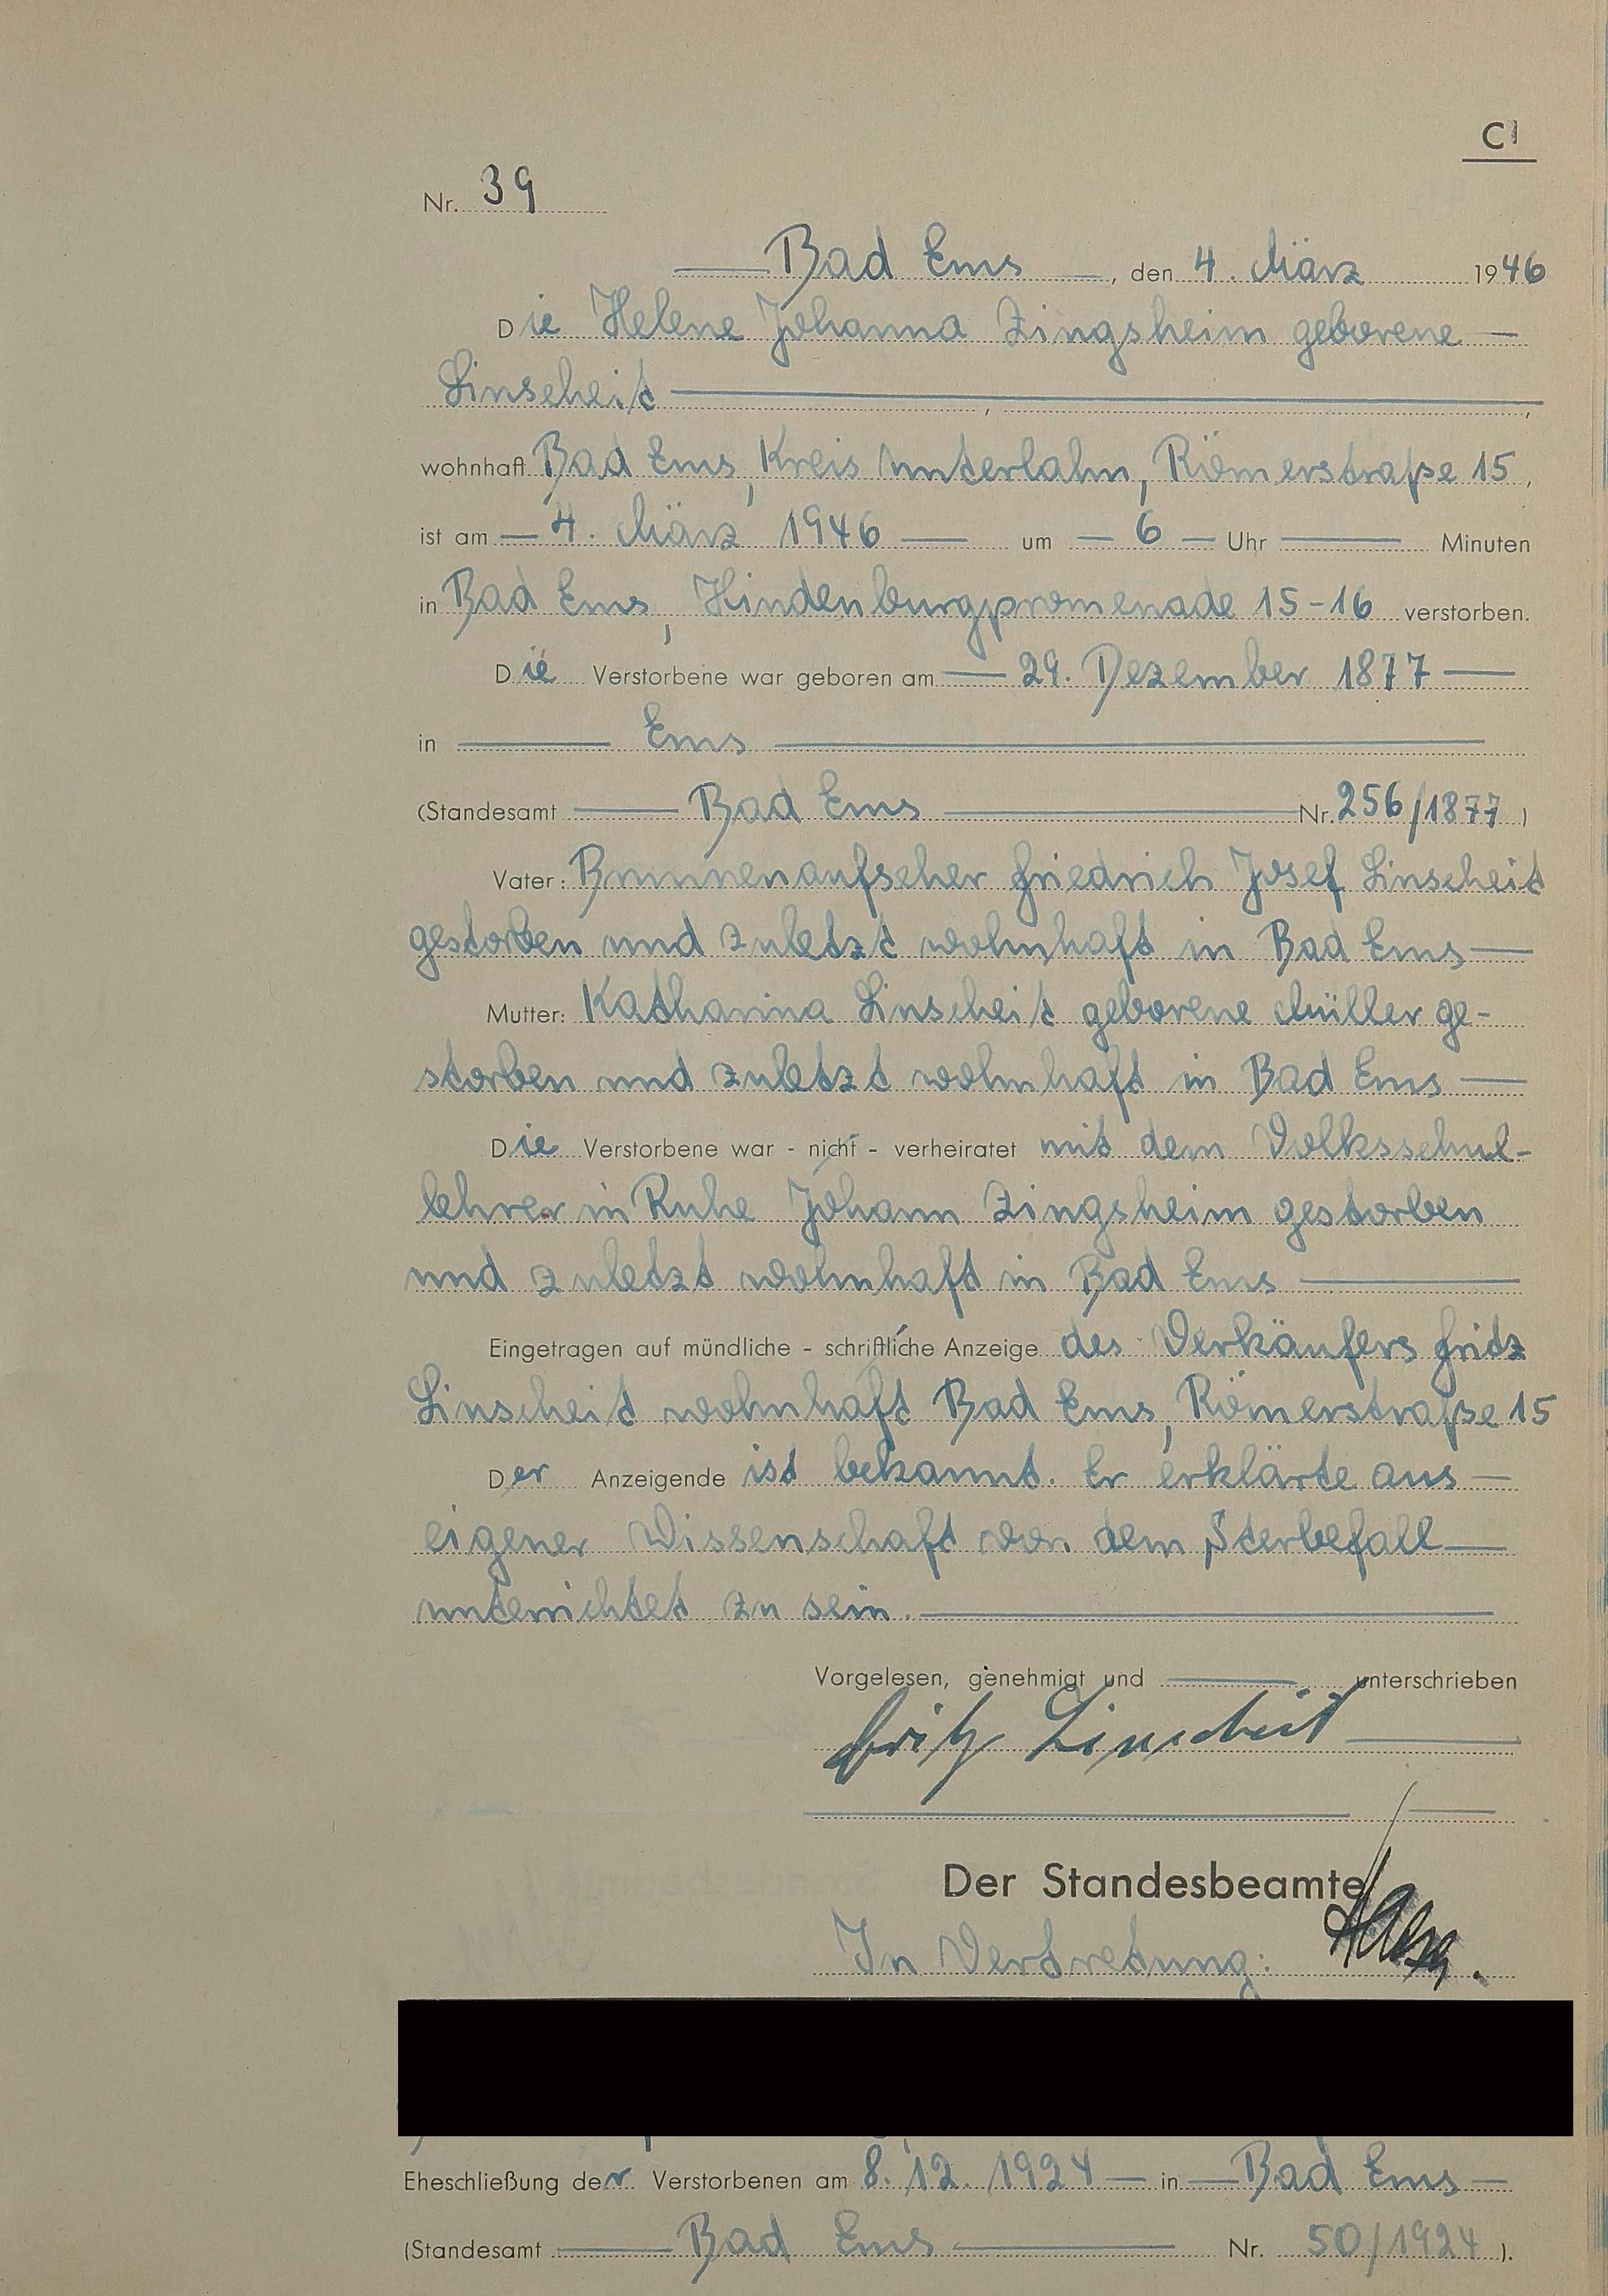 C1
Nr. 39
Bad Ems, den 4. März 1946
Die Helene Johanna Zingsheim geborene
Linscheit
wohnhaft Bad Ems, Kreis Unterlahn, Römerstraße 15,
ist am 4. März 1946 um 6 Uhr Minuten
in Bad Ems, Hindenburgpromenade 15-16 verstorben.
Die Verstorbene war geboren am 29. Dezember 1877
in Ems
(Standesamt Bad Ems Nr. 256/1877)
Vater: Brunnenaufseher Friedrich Josef Linscheit
gestorben und zuletzt wohnhaft in Bad Ems
Mutter: Katharina Linscheit geborene Müller ge-
storben und zuletzt wohnhaft in Bad Ems
Die Verstorbene war - nicht - verheiratet mit dem Volksschul-
lehrer in Ruhe Johann Zingsheim gestorben
und zuletzt wohnhaft in Bad Ems
Eingetragen auf mündliche - schriftliche Anzeige des Verkäufers Fritz
Linscheit wohnhaft Bad Ems, Römerstraße 15
Der Anzeigende ist bekannt. Er erklärte aus
eigener Wissenschaft von dem Sterbefall
unterrichtet zu sein.
Vorgelesen, genehmigt und unterschrieben
Fritz Linscheit
Der Standesbeamte
In Vertretung:
Eheschließung der Verstorbenen am 8.12.1924 in Bad Ems
(Standesamt Bad Ems Nr. 50/1924).